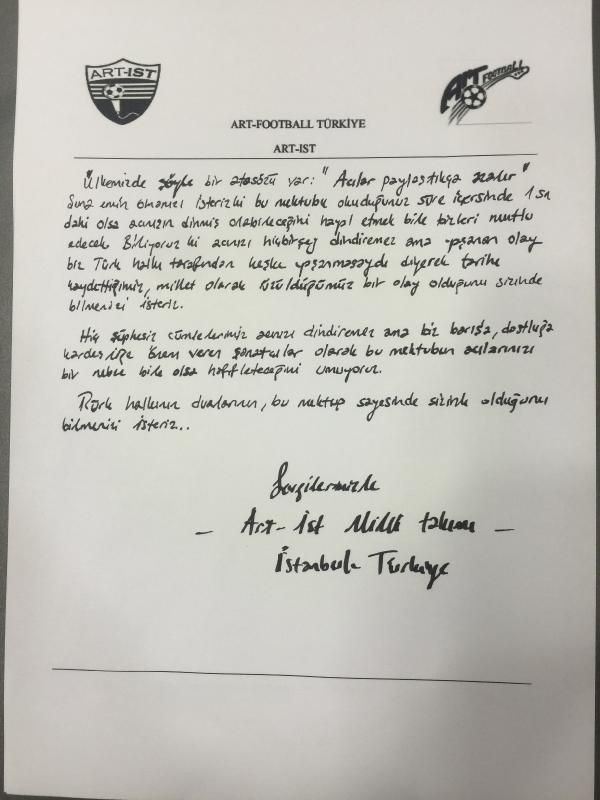 ART-IST
ART FOOTBALL
ART-FOOTBALL TÜRKİYE
ART-IST
Ülkemizde şöyle bir atasözü var: "Acılar paylaştıkça azalır"
Şuna emin olmanızı isterizki bu mektubu okuduğunuz süre içersinde 1 sn
daki olsa acınızın dinmiş olabileceğini hayal etmek bile bizleri mutlu
edecek. Biliyoruz ki acınızı hiçbirşey dindiremez ama yaşanan olay
biz Türk halkı tarafından keşke yaşanmasaydı diyerek tarihe
kaydettiğimiz, millet olarak üzüldüğümüz bir olay olduğunu sizinde
bilmenizi isteriz.
Hiç şüphesiz cümlelerimiz acınızı dindiremez ama biz barışa, dostluğa
kardeşliğe önem veren sanatçılar olarak bu mektubun acılarınızı
bir nebze bile olsa hafifleteceğini umuyoruz.
Türk halkının dualarının, bu mektup sayesinde sizinle olduğunu
bilmenizi isteriz..
Sevgilerimizle
- Art-İst Milli takımı -
İstanbul Türkiye